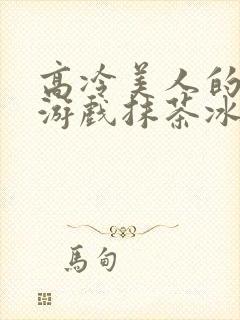 高冷美人的
游戏抹茶冰
馬甸